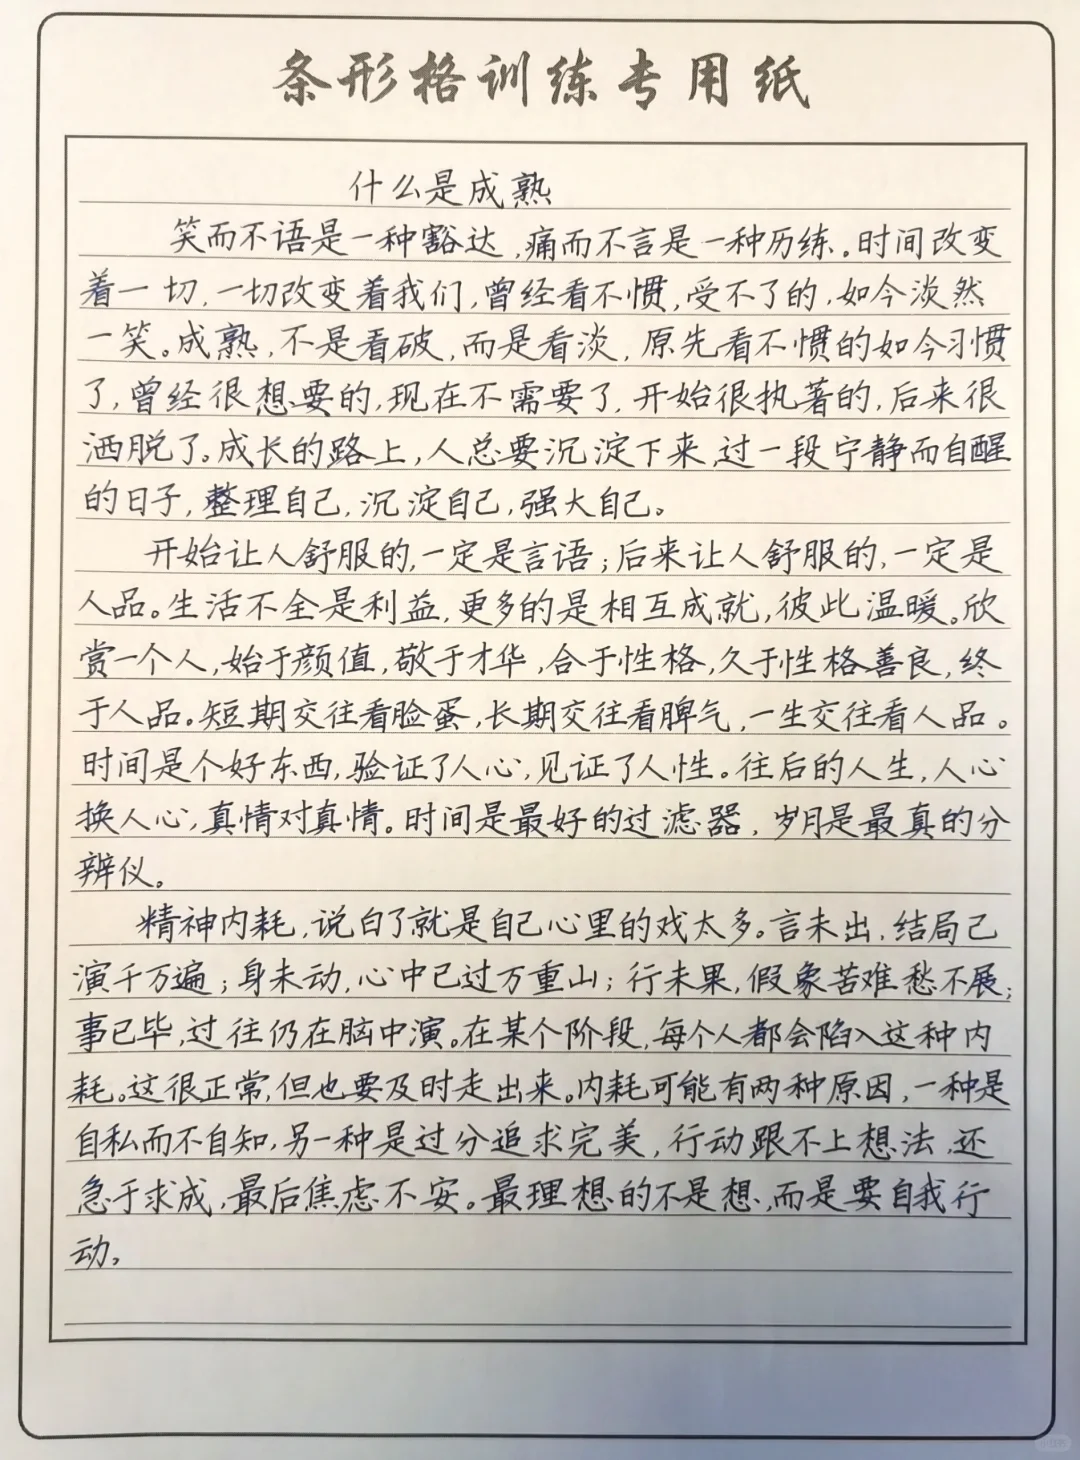 条形格训练专用纸
什么是成熟
笑而不语是一种豁达,痛而不言是一种历练。时间改变
着一切,一切改变着我们,曾经看不惯,受不了的,如今淡然
一笑。成熟,不是看破,而是看淡,原先看不惯的如今习惯
了,曾经很想要的,现在不需要了,开始很执著的,后来很
洒脱了。成长的路上,人总要沉淀下来,过一段宁静而自醒
的日子,整理自己,沉淀自己,强大自己。
开始让人舒服的,一定是言语;后来让人舒服的,一定是
人品。生活不全是利益,更多的是相互成就,彼此温暖。欣
赏一个人,始于颜值,敬于才华,合于性格,久于性格善良,终
于人品。短期交往看脸蛋,长期交往看脾气,一生交往看人品。
时间是个好东西,验证了人心,见证了人性。往后的人生,人心
换人心,真情对真情。时间是最好的过滤器,岁月是最真的分
辨仪。
精神内耗,说白了就是自己心里的戏太多。言未出,结局已
演千万遍;身未动,心中已过万重山;行未果,假象苦难愁不展;
事已毕,过往仍在脑中演。在某个阶段,每个人都会陷入这种内
耗。这很正常,但也要及时走出来。内耗可能有两种原因,一种是
自私而不自知,另一种是过分追求完美,行动跟不上想法,还
急于求成,最后焦虑不安。最理想的不是想,而是要自我行
动。